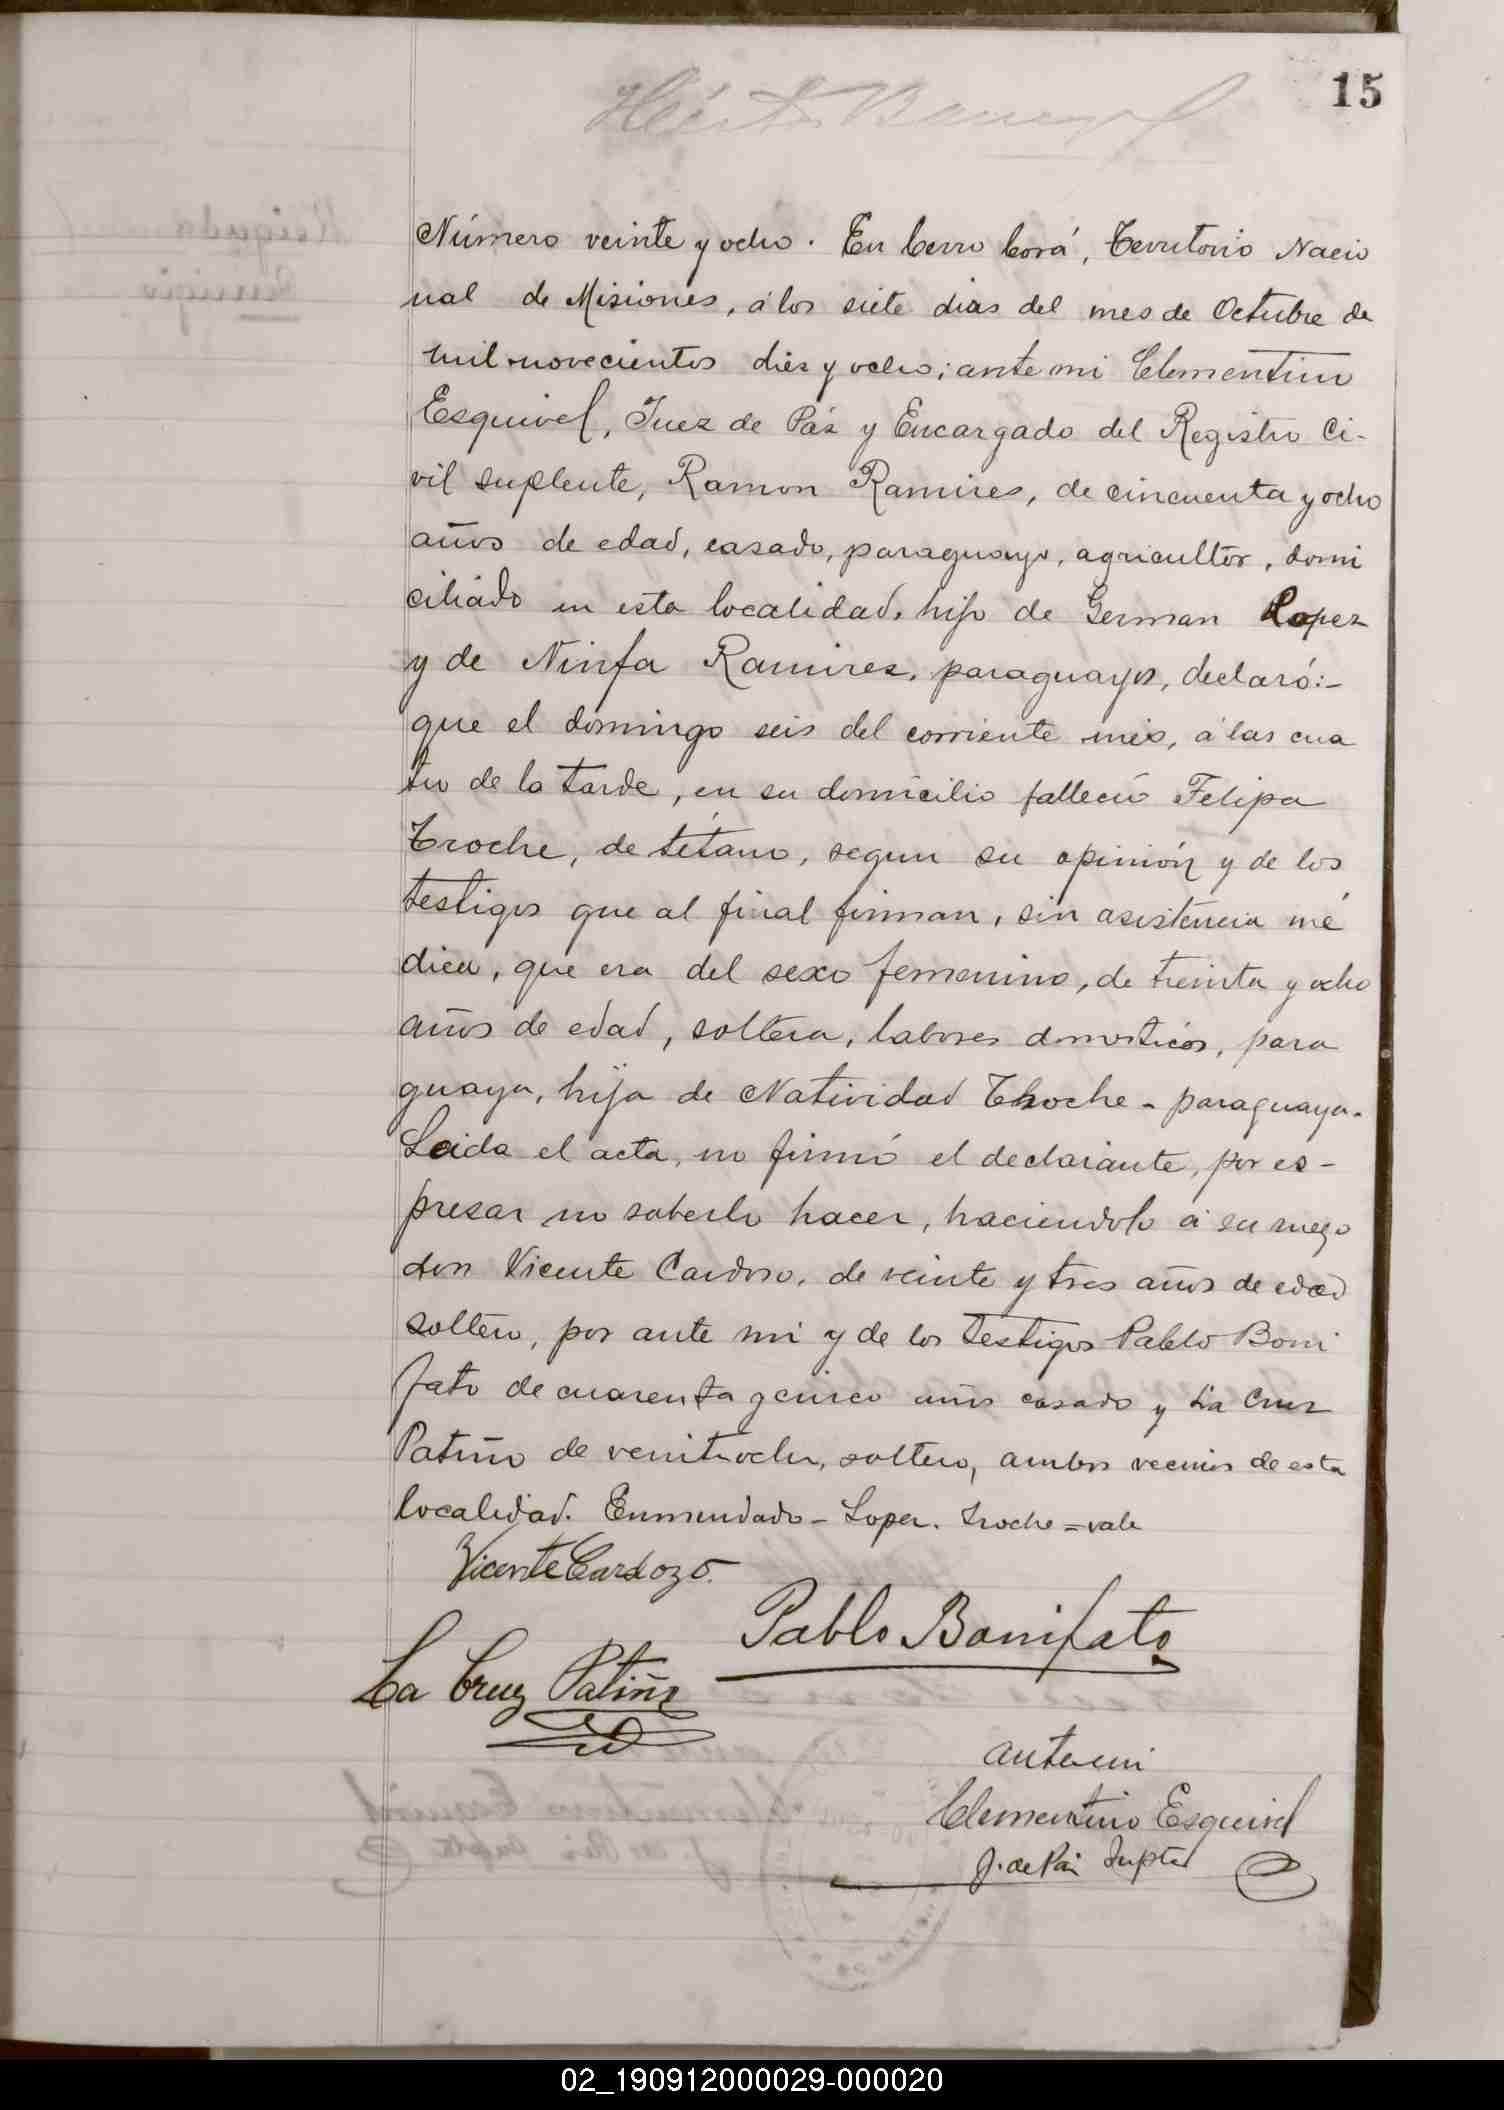 15
Número veinte y ocho. En Cerro Corá, Territorio Nacio
nal de Misiones, á los siete dias del mes de Octubre de
mil novecientos dies y ocho; ante mi Clementino
Esquivel, Juez de Páz y Encargado del Registro Ci-
vil suplente, Ramon Ramires, de cincuenta y ocho
años de edad, casado, paraguayo, agricultor, domi
ciliado en esta localidad, hijo de German Lopez
y de Ninfa Ramires, paraguayos, declaró:-
que el domingo seis del corriente més, á las cua
tro de la tarde, en su domicilio falleció Felipa
Troche, de tétano, segun su opinión y de los
testigos que al final firman, sin asistencia mé
dica, que era del sexo femenino, de treinta y ocho
años de edad, soltera, labores domesticos, para
guaya, hija de Natividad Troche - paraguaya.
Leida el acta, no firmó el declarante, por es-
presar no saberlo hacer, haciendolo á su ruego
don Vicente Cardoso, de veinte y tres años de edad
soltero, por ante mi y de los testigos Pablo Boni
fato de cuarenta y cinco años casado y La Cruz
Patiño de veintiocho, soltero, ambos vecinos de esta
localidad. Enmendado - Lopez. Troche = vale
Vicente Cardozo.
Pablo Bonifato
La Cruz Patiño
ante mi
Clementino Esquivel
J. de Paz Suptе
02_190912000029-000020